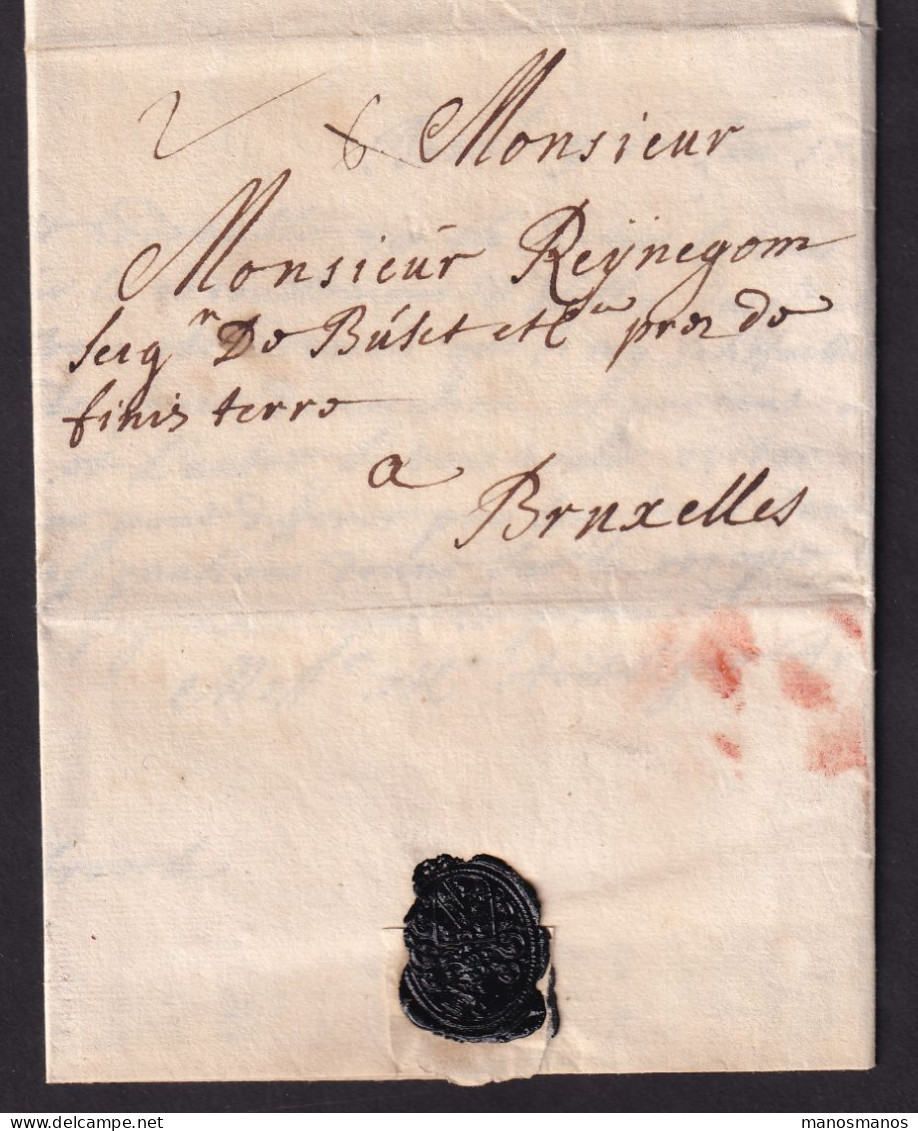 2 Monsieur
Monsieur Reÿnegom
seigr De Buset etca pres de
finis terre
a
Bruxelles
manosmanos